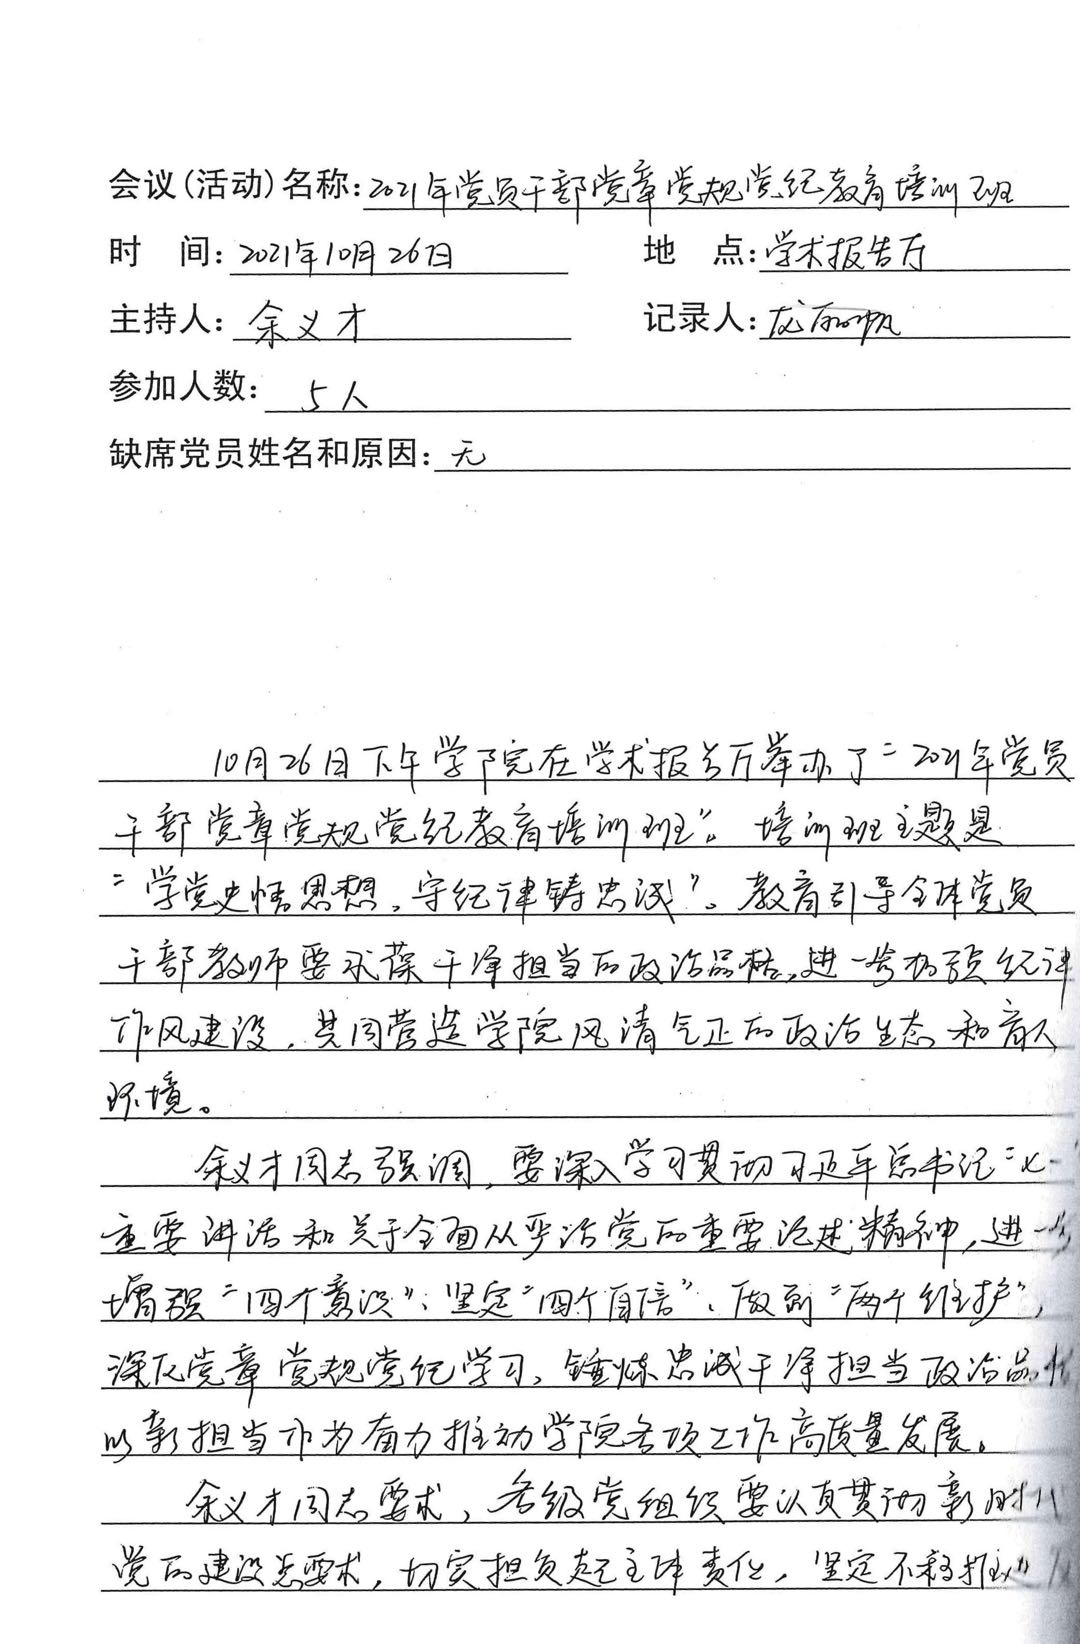 会议(活动)名称:2021年党员干部党章党规党纪教育培训班
时 间:2021年10月26日 地 点:学术报告厅
主持人:余义才 记录人:龙
参加人数:5人
缺席党员姓名和原因:无
10月26日下午学院在学术报告厅举办了“2021年党员
干部党章党规党纪教育培训班”。培训班主题是
“学党史悟思想,守纪律铸忠诚”。教育引导全体党员
干部教师要永葆干净担当的政治品格,进一步加强纪律
作风建设,共同营造学院风清气正的政治生态和育人
环境。
余义才同志强调,要深入学习贯彻习近平总书记“七一
重要讲话和关于全面从严治党的重要论述精神,进一步
增强“四个意识”、坚定“四个自信”、做到“两个维护”,
深化党章党规党纪学习,锤炼忠诚干净担当政治品格
以新担当作为奋力推动学院各项工作高质量发展。
余义才同志要求,各级党组织要认真贯彻新时代
党的建设总要求,切实担负起主体责任,坚定不移推